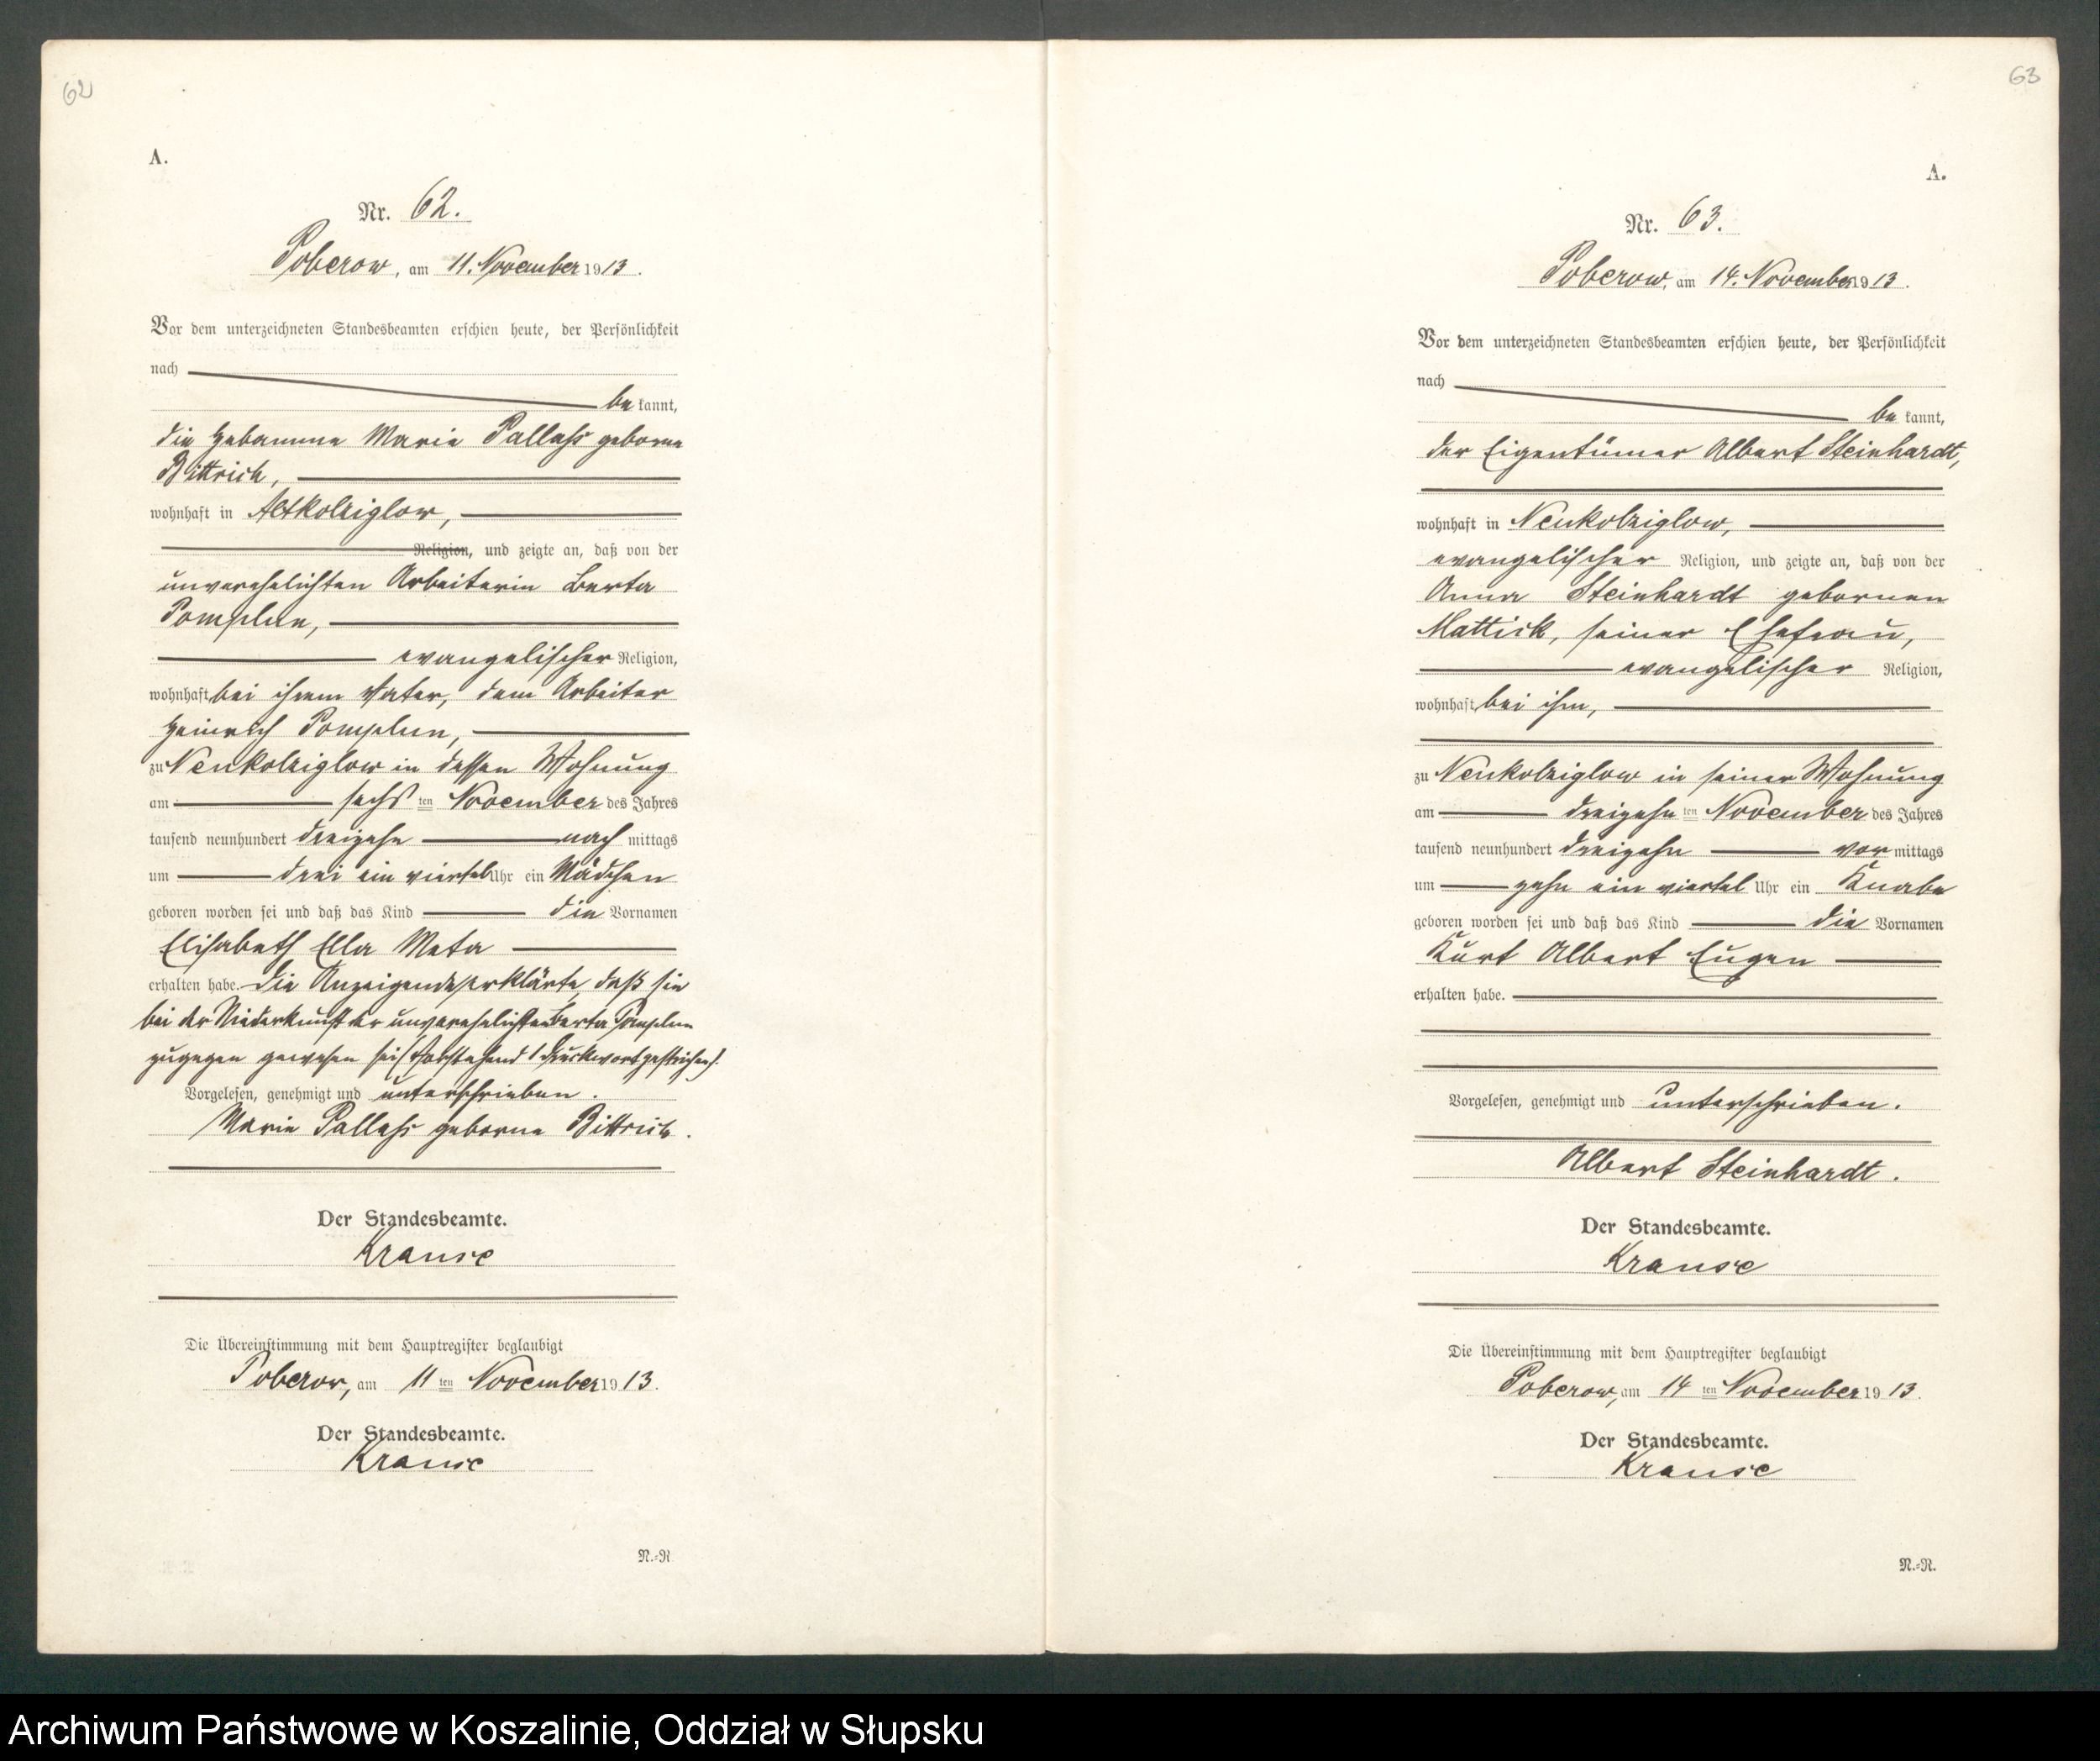 62
A.
Nr. 62.
Poberow, am 11. November 1913.
Vor dem unterzeichneten Standesbeamten erschien heute, der Persönlichkeit
nach
be kannt,
die Hebamme Marie Pallaß geborne
Bittrich,
wohnhaft in Altkolziglow,
Religion, und zeigte an, daß von der
unverehelichten Arbeiterin Berta
Pomplun,
evangelischer Religion,
wohnhaft bei ihrem Vater, dem Arbeiter
Heinrich Pomplun,
zu Neukolziglow in dessen Wohnung
am sechs ten November des Jahres
tausend neunhundert dreizehn nach mittags
um drei ein viertel Uhr ein Mädchen
geboren worden sei und daß das Kind die Vornamen
Elisabeth Ella Meta
erhalten habe. Die Anzeigende erklärte, daß sie
bei der Niederkunft der unverehelichten Berta Pomplun
zugegen gewesen sei (Vorstehend 1 Druckwort gestrichen).
Vorgelesen, genehmigt und unterschrieben.
Marie Pallaß geborne Bittrich.
Der Standesbeamte.
Krause
Die Übereinstimmung mit dem Hauptregister beglaubigt
Poberow, am 11 ten November 1913.
Der Standesbeamte.
Krause
N.-R.
63
A.
Nr. 63.
Poberow, am 14. November 1913.
Vor dem unterzeichneten Standesbeamten erschien heute, der Persönlichkeit
nach
be kannt,
der Eigentümer Albert Steinhardt,
wohnhaft in Neukolziglow,
evangelischer Religion, und zeigte an, daß von der
Anna Steinhardt gebornen
Mattick, seiner Ehefrau,
evangelischer Religion,
wohnhaft bei ihm,
zu Neukolziglow in seiner Wohnung
am dreizehn ten November des Jahres
tausend neunhundert dreizehn vor mittags
um zehn ein viertel Uhr ein Knabe
geboren worden sei und daß das Kind die Vornamen
Kurt Albert Eugen
erhalten habe.
Vorgelesen, genehmigt und unterschrieben.
Albert Steinhardt.
Der Standesbeamte.
Krause
Die Übereinstimmung mit dem Hauptregister beglaubigt
Poberow, am 14 ten November 1913.
Der Standesbeamte.
Krause
N.-R.
Archiwum Państwowe w Koszalinie, Oddział w Słupsku